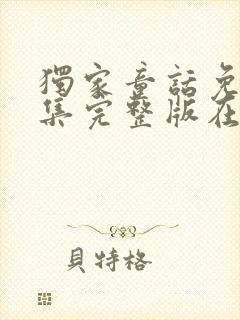 獨家童話免
集完整版在
貝特格